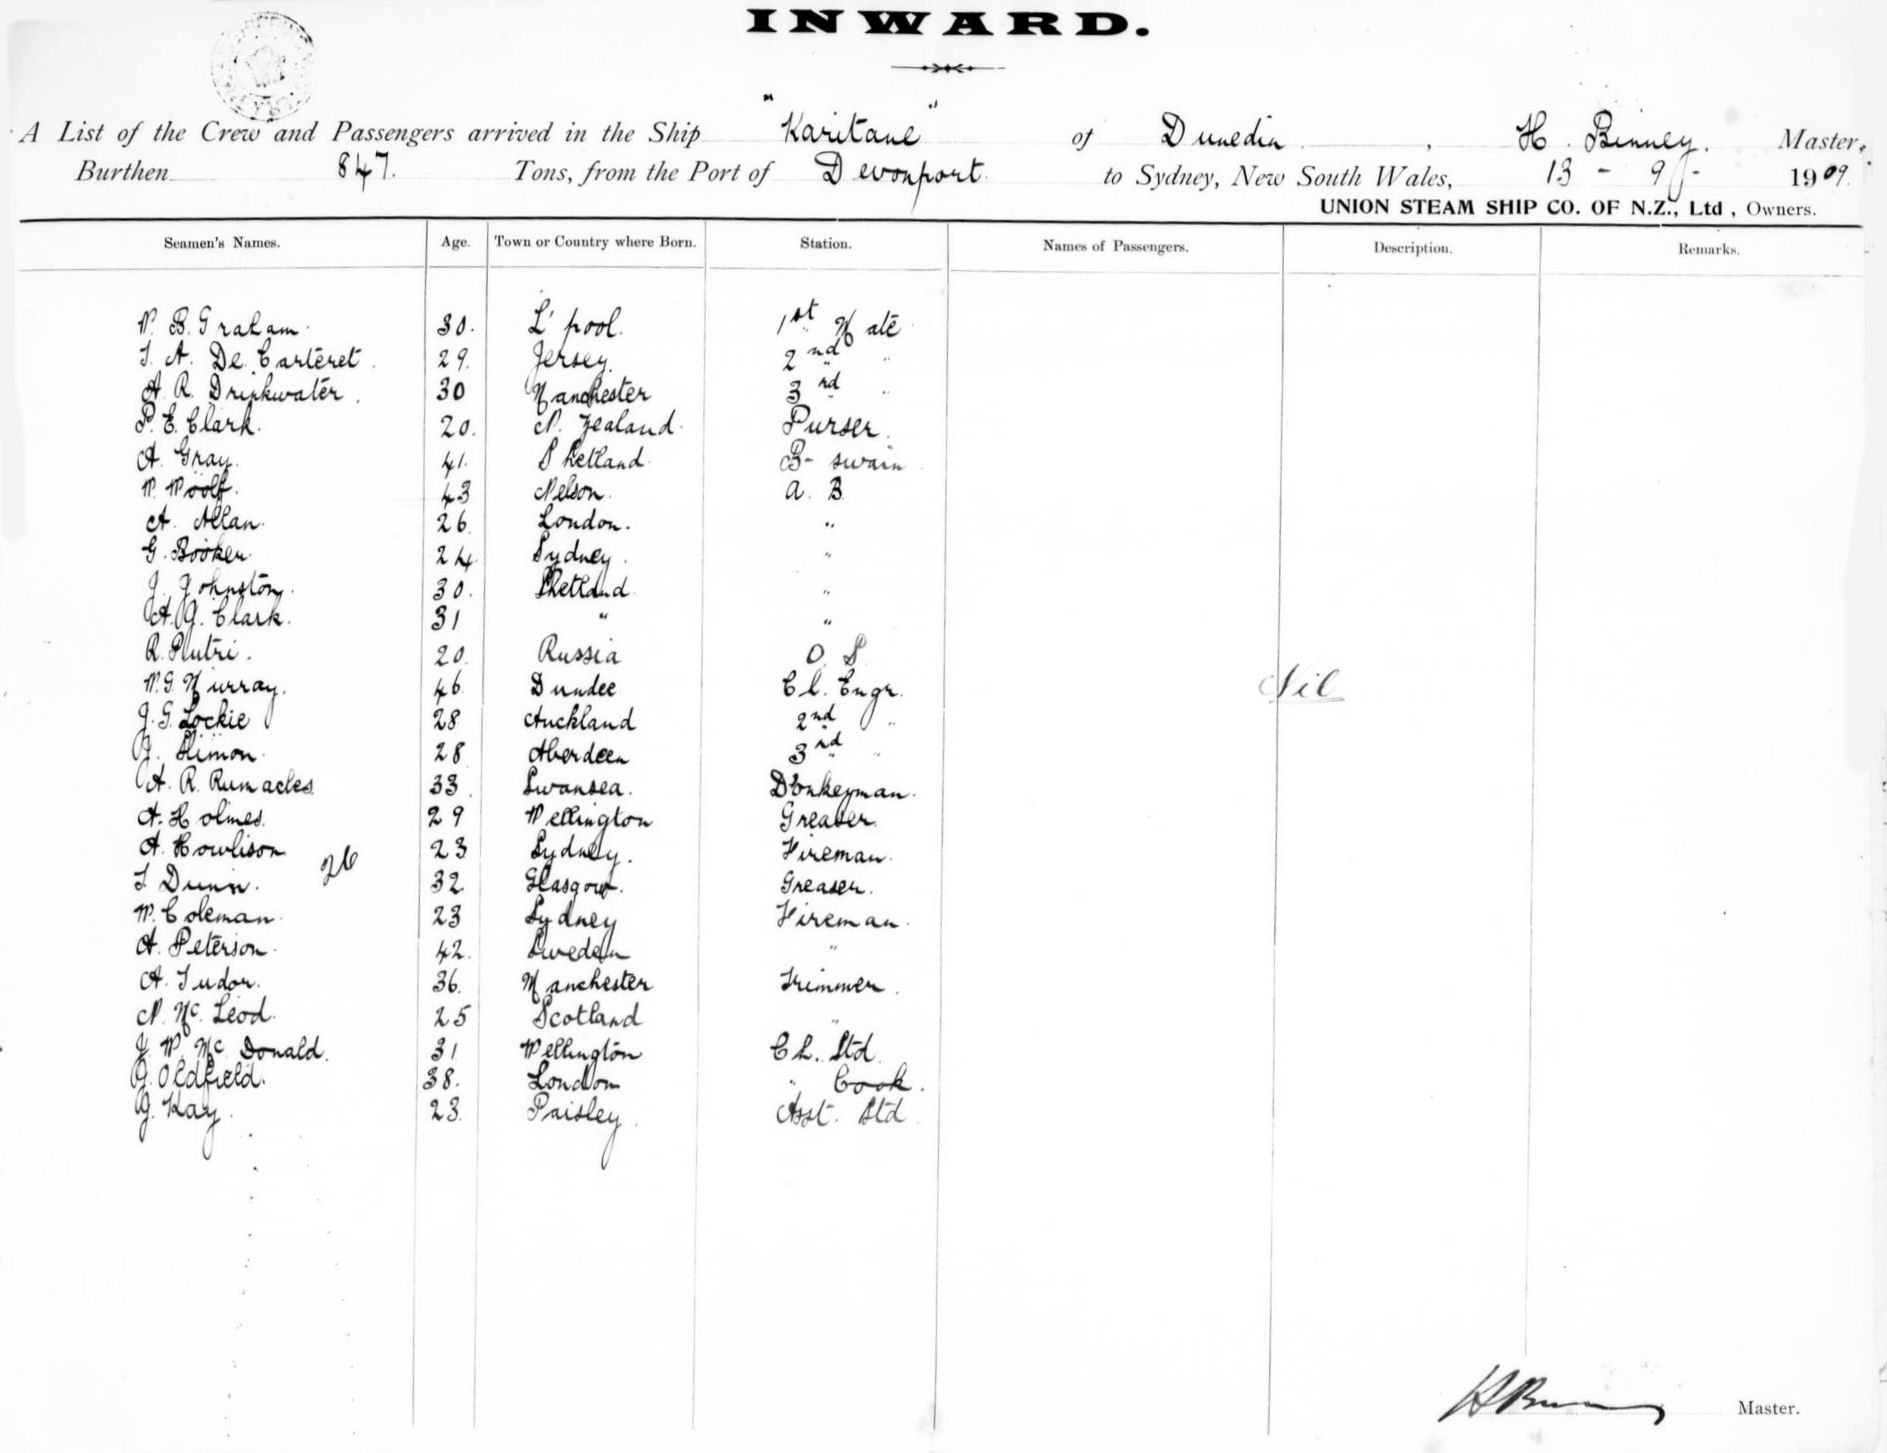 INWARD.
A List of the Crew and Passengers arrived in the Ship "Karitane" of Dunedin, H. Binney. Master,
Burthen 847. Tons, from the Port of Devonport to Sydney, New South Wales, 13 - 9 - 1909.
UNION STEAM SHIP CO. OF N.Z., Ltd, Owners.
Seamen's Names. Age. Town or Country where Born. Station. Names of Passengers. Description. Remarks.
W. B. Graham. 30. L'pool. 1st Mate
T. A. De Carteret. 29. Jersey. 2nd "
A. R. Drinkwater. 30 Manchester 3rd "
P. E. Clark. 20. N. Zealand. Purser.
A. Gray. 41. Shetland B-swain
W. Woolf. 43 Nelson. A. B.
A. Allan. 26. London. "
G. Booker. 24. Sydney. "
J. Johnston. 30. Shetland "
A. J. Clark. 31 " "
R. 20. Russia O. S.
W. G. Murray. 46. Dundee Ch. Engr.
J. G. Lockie 28 Auckland 2nd "
J. Slimon. 28 Aberdeen 3rd "
A. R. Rumacles 33. Swansea. Donkeyman.
A. Holmes. 29 Wellington Greaser.
A. Howlison 23 Sydney. Fireman.
26
T. Dunn. 32 Glasgow. Greaser.
W. Coleman. 23 Sydney Fireman.
A. Peterson. 42. Sweden "
A. Tudor. 36. Manchester Trimmer.
N. McLeod. 25 Scotland "
J. W. McDonald. 31 Wellington Ch. Std.
J. Oldfield. 38. London " Cook.
J. Kay. 23. Paisley. Asst. Std
Nil
H Binney Master.